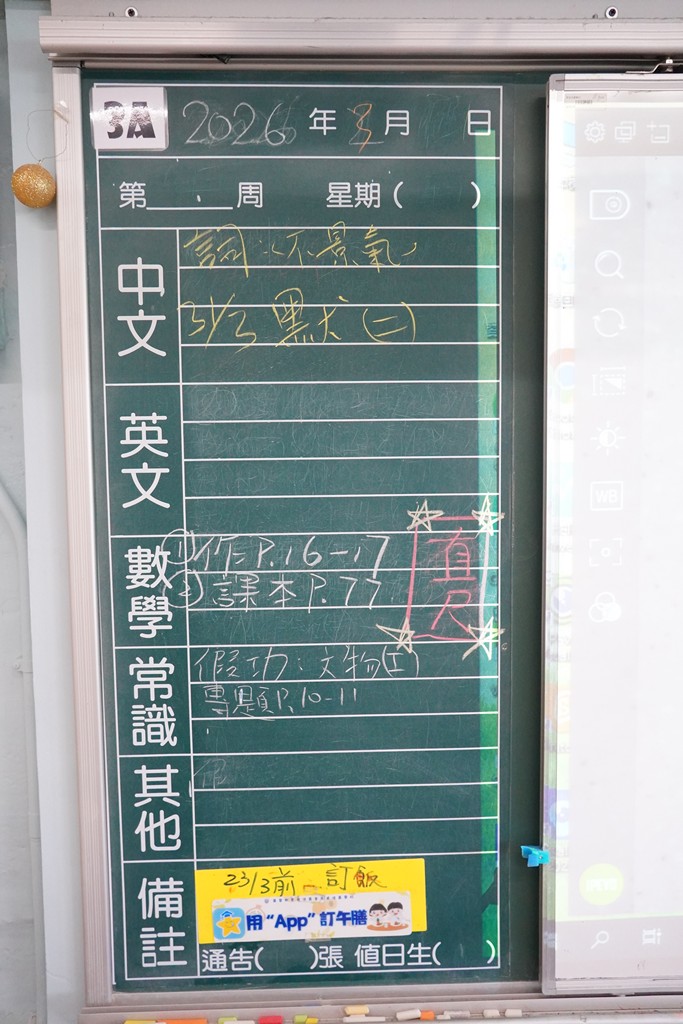 3A 2026 年 3 月 日
第 周 星期( )
中文
詞:〈不景氣〉
31/3 默(二)
英文
數學
① 作P.16-17
② 課本P.77
直尺
常識
假功:文物(工)
專題P.10-11
其他
備註
23/3前 訂飯
用“App”訂午膳
通告( )張 值日生( )
WB